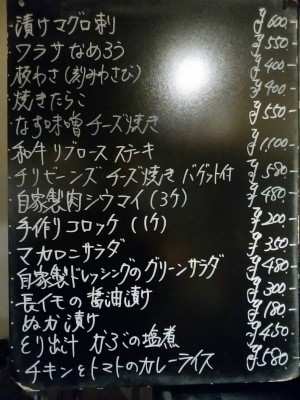 ・漬けマグロ刺 ¥600-
・ワラサなめろう ¥550-
・板わさ(刻みわさび) ¥400-
・焼きたらこ ¥400-
・なす味噌チーズ焼き ¥550-
・和牛リブロースステーキ ¥1,100-
・チリビーンズチーズ焼き バゲット付 ¥580-
・自家製肉シウマイ(3ケ) ¥480-
・手作りコロッケ(1ケ) ¥200-
・マカロニサラダ ¥350-
・自家製ドレッシングのグリーンサラダ ¥480-
・長イモの醤油漬け ¥300-
・ぬか漬け ¥180-
・とり出汁 かぶの塩煮 ¥450-
・チキンとトマトのカレーライス ¥580-